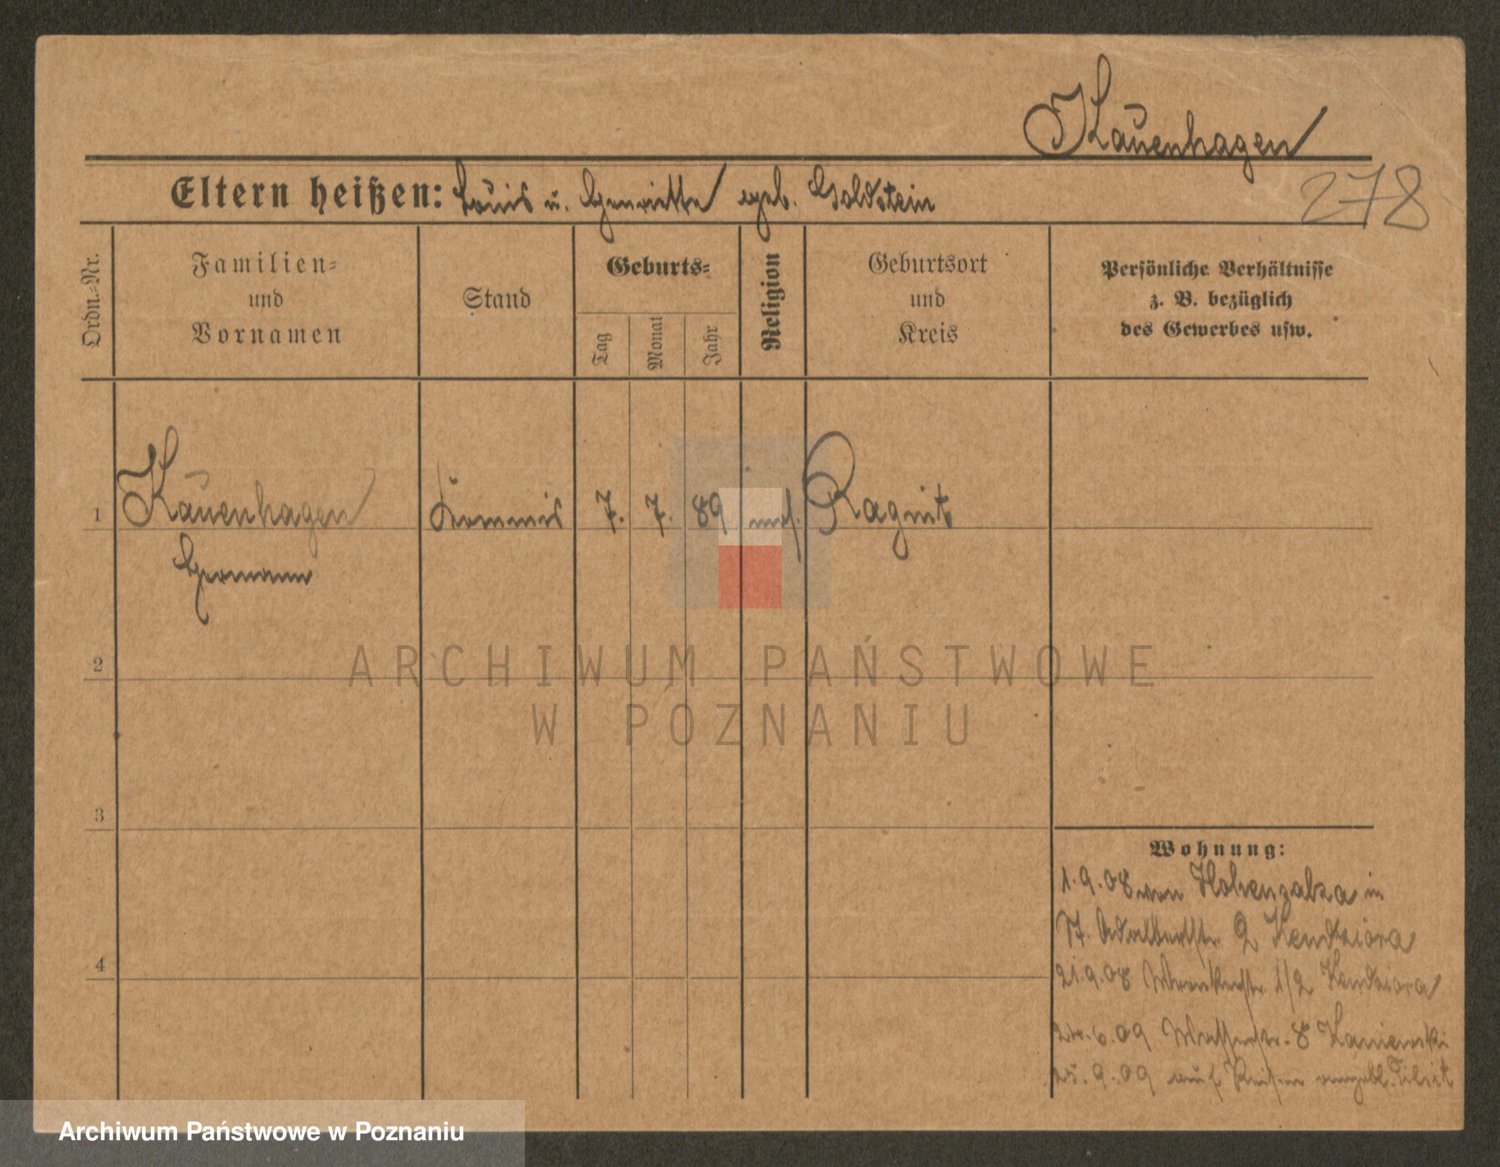 Kauenhagen
278
Eltern heißen: Louis u. Henriette geb. Goldstein
Ordn.-Nr.
Familien-
und
Vornamen
Stand
Geburts-
Tag
Monat
Jahr
Religion
Geburtsort
und
Kreis
Persönliche Verhältnisse
z. B. bezüglich
des Gewerbes usw.
1
Kauenhagen
Hermann
Kommis
7.
7.
89
mos.
Ragnit
2
3
4
Wohnung:
1.9.08 von Hohensalza in
St. Adalbertstr. 2 Kendziora
21.9.08 Wronkerstr. 1/2 Kendziora
6.09 8 Kaniewski
25.9.09 auf Reisen angebl. Tilsit
ARCHIWUM PAŃSTWOWE
W POZNANIU
Archiwum Państwowe w Poznaniu